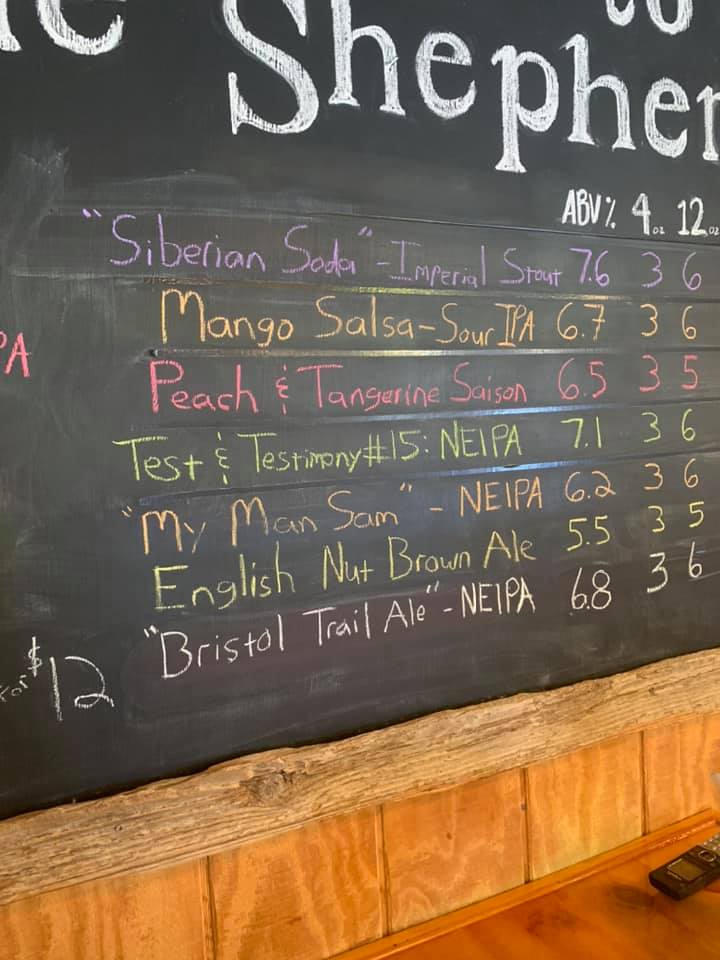 to
Shepher
ABV% 4oz 12oz
"Siberian Soda" - Imperial Stout 7.6 3 6
Mango Salsa - Sour IPA 6.7 3 6
PA
Peach & Tangerine Saison 6.5 3 5
Test & Testimony #15: NEIPA 7.1 3 6
"My Man Sam" - NEIPA 6.2 3 6
English Nut Brown Ale 5.5 3 5
"Bristol Trail Ale" - NEIPA 6.8 3 6
For $12